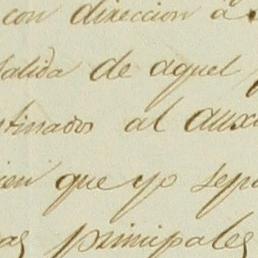 con direccion á
salida de aquel
tinados al auxi
cion que yo sepa
as principales